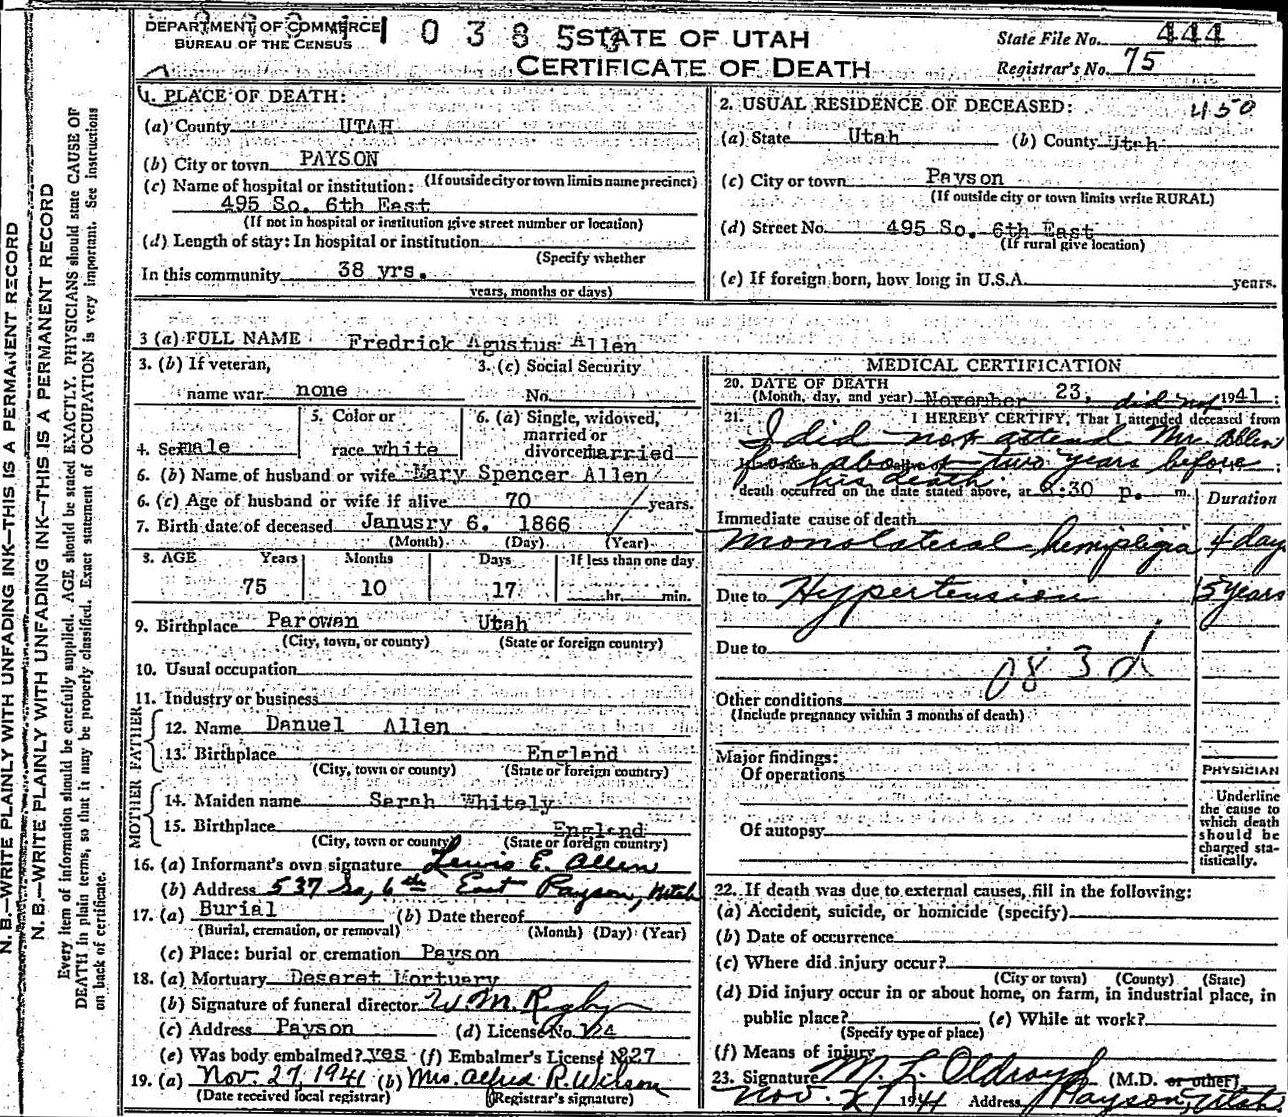 DEPARTMENT OF COMMERCE
BUREAU OF THE CENSUS
1 0 3 8 5
STATE OF UTAH
CERTIFICATE OF DEATH
State File No. 444
Registrar's No. 75
1. PLACE OF DEATH:
(a) County UTAH
(b) City or town PAYSON
(If outside city or town limits name precinct)
(c) Name of hospital or institution:
495 So. 6th East
(If not in hospital or institution give street number or location)
(d) Length of stay: In hospital or institution
(Specify whether
In this community 38 yrs.
years, months or days)
2. USUAL RESIDENCE OF DECEASED: 450
(a) State Utah (b) County Utah
(c) City or town Payson
(If outside city or town limits write RURAL)
(d) Street No. 495 So. 6th East
(If rural give location)
(e) If foreign born, how long in U.S.A. years.
3 (a) FULL NAME Fredrick Agustus Allen
3. (b) If veteran,
name war none
3. (c) Social Security
No.
4. Sex male
5. Color or
race white
6. (a) Single, widowed,
married or
divorced married
6. (b) Name of husband or wife Mary Spencer Allen
6. (c) Age of husband or wife if alive 70 years.
7. Birth date of deceased Janusry 6. 1866
(Month) (Day) (Year)
8. AGE Years Months Days If less than one day
75 10 17 hr. min.
9. Birthplace Parowan Utah
(City, town, or county) (State or foreign country)
10. Usual occupation
11. Industry or business
FATHER
12. Name Danuel Allen
13. Birthplace England
(City, town or county) (State or foreign country)
MOTHER
14. Maiden name Sarah Whitely
15. Birthplace England
(City, town or county) (State or foreign country)
16. (a) Informant's own signature Lewis E. Allen
(b) Address 537 So, 6th East Payson, Utah
17. (a) Burial (b) Date thereof
(Burial, cremation, or removal) (Month) (Day) (Year)
(c) Place: burial or cremation Payson
18. (a) Mortuary Deseret Mortuary
(b) Signature of funeral director W. M. Rigby
(c) Address Payson (d) License No. 124
(e) Was body embalmed? yes (f) Embalmer's License No. 227
19. (a) Nov. 27, 1941 (b) Mrs. Alfred R. Wilson
(Date received local registrar) (Registrar's signature)
MEDICAL CERTIFICATION
20. DATE OF DEATH
(Month, day, and year) November 23, 1941
did not
21. I HEREBY CERTIFY, That I attended deceased from
I did not attend Mr Allen
for about two years before
his death.
death occurred on the date stated above, at 6:30 p. m.
Duration
Immediate cause of death
Monolateral hemiplegia 4 day
Due to Hypertension 15 years
Due to
083d
Other conditions
(Include pregnancy within 3 months of death)
Major findings:
Of operations
Of autopsy
PHYSICIAN
Underline
the cause to
which death
should be
charged sta-
tistically.
22. If death was due to external causes, fill in the following:
(a) Accident, suicide, or homicide (specify)
(b) Date of occurrence
(c) Where did injury occur?
(City or town) (County) (State)
(d) Did injury occur in or about home, on farm, in industrial place, in
public place? (e) While at work?
(Specify type of place)
(f) Means of injury
23. Signature M. L. Oldroyd (M.D. or other)
Nov. 27 1941 Address Payson Utah
N. B.—WRITE PLAINLY WITH UNFADING INK—THIS IS A PERMANENT RECORD
N. B.—WRITE PLAINLY WITH UNFADING INK—THIS IS A PERMANENT RECORD
Every item of information should be carefully supplied. AGE should be stated EXACTLY. PHYSICIANS should state CAUSE OF
DEATH in plain terms, so that it may be properly classified. Exact statement of OCCUPATION is very important. See instructions
on back of certificate.